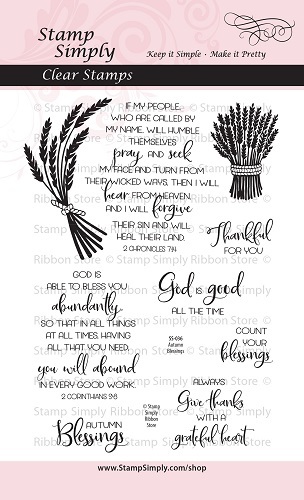 Stamp
Simply
Keep it Simple · Make it Pretty
Clear Stamps
IF MY PEOPLE,
WHO ARE CALLED BY
MY NAME, WILL HUMBLE
THEMSELVES
pray and seek
MY FACE AND TURN FROM
THEIR WICKED WAYS, THEN I WILL
hear FROM HEAVEN,
AND I WILL forgive
THEIR SIN AND WILL
HEAL THEIR LAND.
2 CHRONICLES 7:14
Thankful
FOR YOU
GOD IS
ABLE TO BLESS YOU
abundantly
SO THAT IN ALL THINGS
AT ALL TIMES, HAVING
ALL THAT YOU NEED,
you will abound
IN EVERY GOOD WORK.
2 CORINTHIANS 9:8
God is good
ALL THE TIME
SS-036
Autumn
Blessings
COUNT
YOUR
blessings
ALWAYS
Give thanks
WITH A
grateful heart
Stamp
Simply
Ribbon
Store
AUTUMN
Blessings
© Stamp Simply Ribbon Store ©
www.StampSimply.com/shop